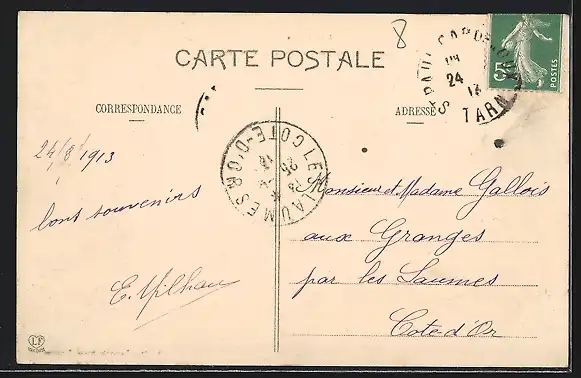 8
CARTE POSTALE
ST PAUL CAP DE JOUX
24
13
TARN
5
POSTES
CORRESPONDANCE
ADRESSE
LES LAUMES COTE-D'OR
25
13
24/8/1913
bons souvenirs
E. Milhau
Monsieur et Madame Gallois
aux Granges
par les Laumes
Cote d'Or
LF